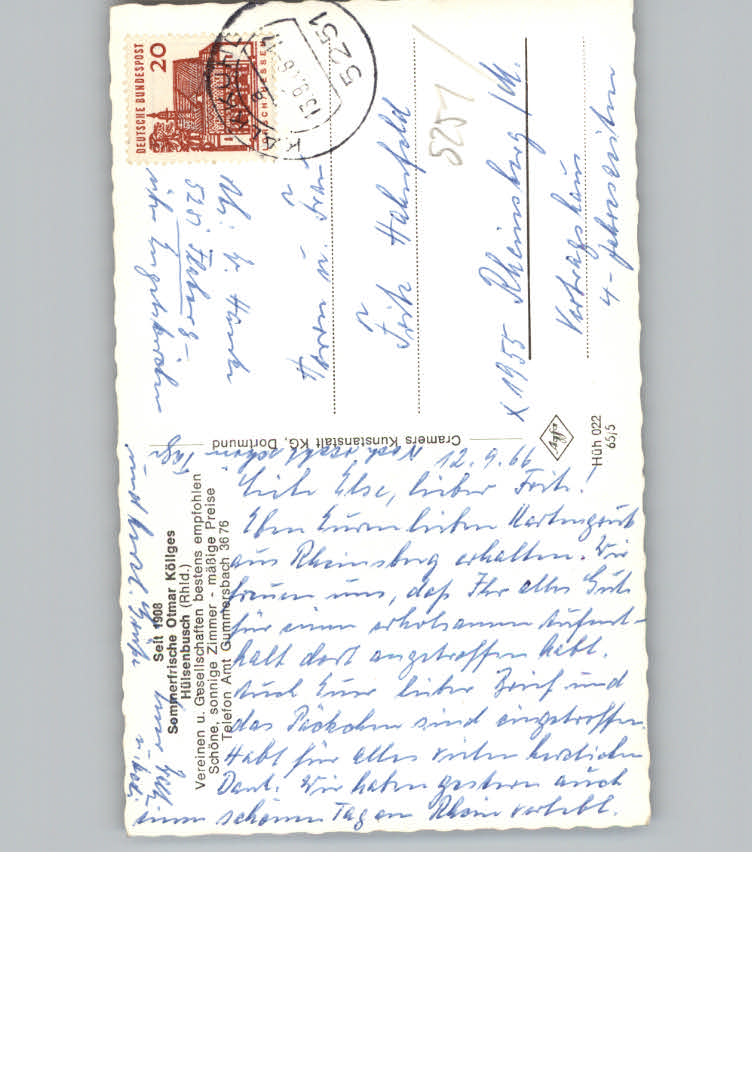 Seit 1908
Sommerfrische Otmar Köllges
Hülsenbusch (Rhld.)
Vereinen u. Gesellschaften bestens empfohlen
Schöne, sonnige Zimmer - mäßige Preise
Telefon Amt Gummersbach 36 76
12. 9. 66
Liebe Else, lieber Fritz!
Eben Euren lieben Kartengruß
aus Rheinsberg erhalten. Wir
freuen uns, daß Ihr alles Gute
für einen erholsamen Aufent-
halt dort angetroffen habt.
Auch Euer lieber Brief und
das Päckchen sind eingetroffen.
Habt für alles vielen herzlichen
Dank. Wir haben gestern auch
einen schönen Tag am Rhein verlebt.
Noch schöne Tage
und herzl. Grüße
Cramers Kunstanstalt KG, Dortmund
Hüh 022
65/5
DEUTSCHE BUNDESPOST
20
5251
5251
Herrn u. Frau
Fritz
X 1955 Rheinsberg /M.
Vertragshaus
4-Jahreszeiten